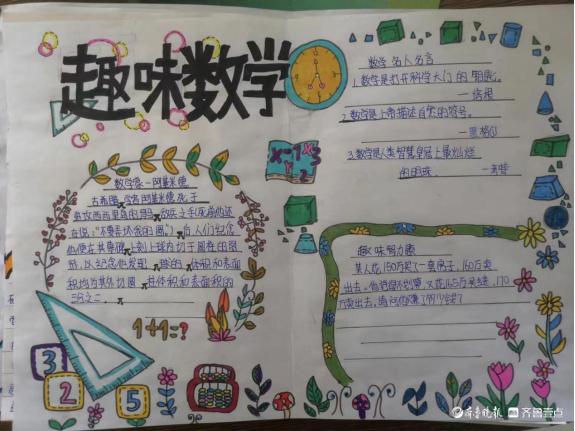 趣味数学
数学家—阿基米德
古希腊
进攻西西里岛的罗马敌兵之手(死前他还
在说:"不要弄坏我的圆。")后,人们纪念
他便在其墓碑上刻上球内切于圆柱的图
形,以纪念他发现球的体积和表面
积均为其外切圆柱体积和表面积的
三分之二。
1+1=?
3
2
5
数学 名人名言
1.数学是打开科学大门的钥匙。
—培根
2.数学是上帝描述自然的符号。
—黑格尔
3.数学是人类智慧皇冠上最灿烂
的明珠.
趣味智力题
某人花150万买了一栋房子,160万卖
出去,他觉得不划算,又花165万买回来,170
万卖出去,请问他赚了
齐鲁晚报 齐鲁壹点